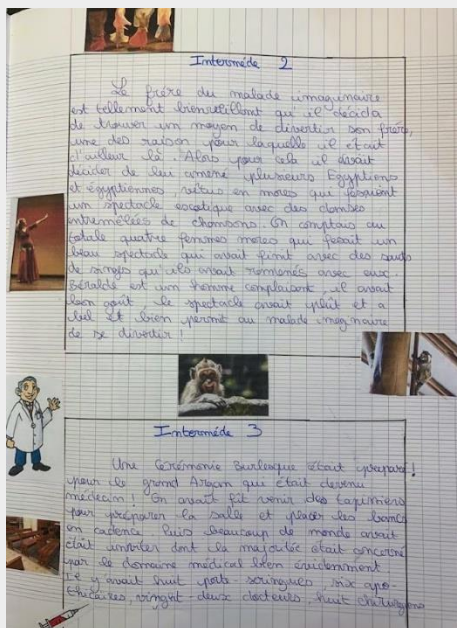 Intermède 2
Le frère du malade imaginaire
est tellement bienveillant qu'il décida
de trouver un moyen de divertir son frère,
une des raison pour laquelle il était
d'ailleur là. Alors pour cela il avait
décider de lui amené plusieurs Egyptiens
et égyptiennes, vêtus en mores qui fesaient
un spectacle exotique avec des danses
entremêlées de chansons. On comptais au
totale quatre femmes mores qui fesait un
beau spectacle qui avait finit avec des sauts
de singes qu'ils avait ramenés avec eux.
Béralde est un homme complaisant, il avait
bon goût, le spectacle avait plût et a
bel et bien permit au malade imaginaire
de se divertir !
Intermède 3
Une Cérémonie Burlesque était préparé !
pour le grand Argan qui était devenu
médecin ! On avait fit venir des tapissiers
pour préparer la salle et placer les bancs
en cadence, puis beaucoup de monde avait
était inviter dont la majoritée était concerné
par le domaine médical bien évidemment
Il y avait huit porte-seringues, six apo-
thicaires, vinght-deux docteurs, huit chirurgiens